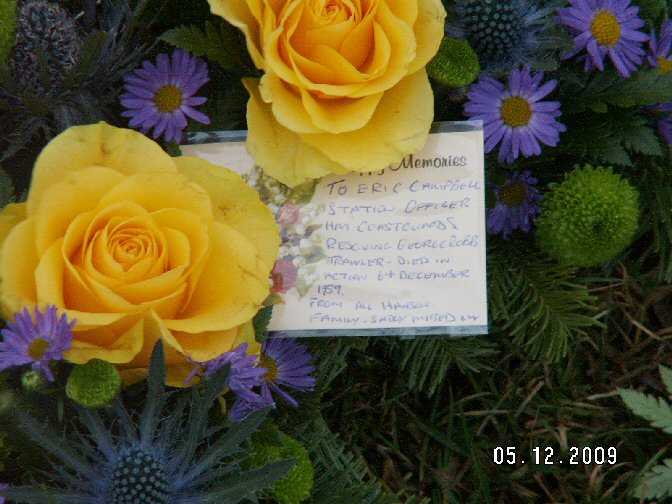 Memories
TO ERIC CAMPBELL
STATION OFFICER
HM COASTGUARDS
RESCUING GEORGE ROBB
TRAWLER - DIED IN
ACTION 6th DECEMBER
1959.
FROM ALL HANSON
FAMILY - SADLY MISSED
05.12.2009